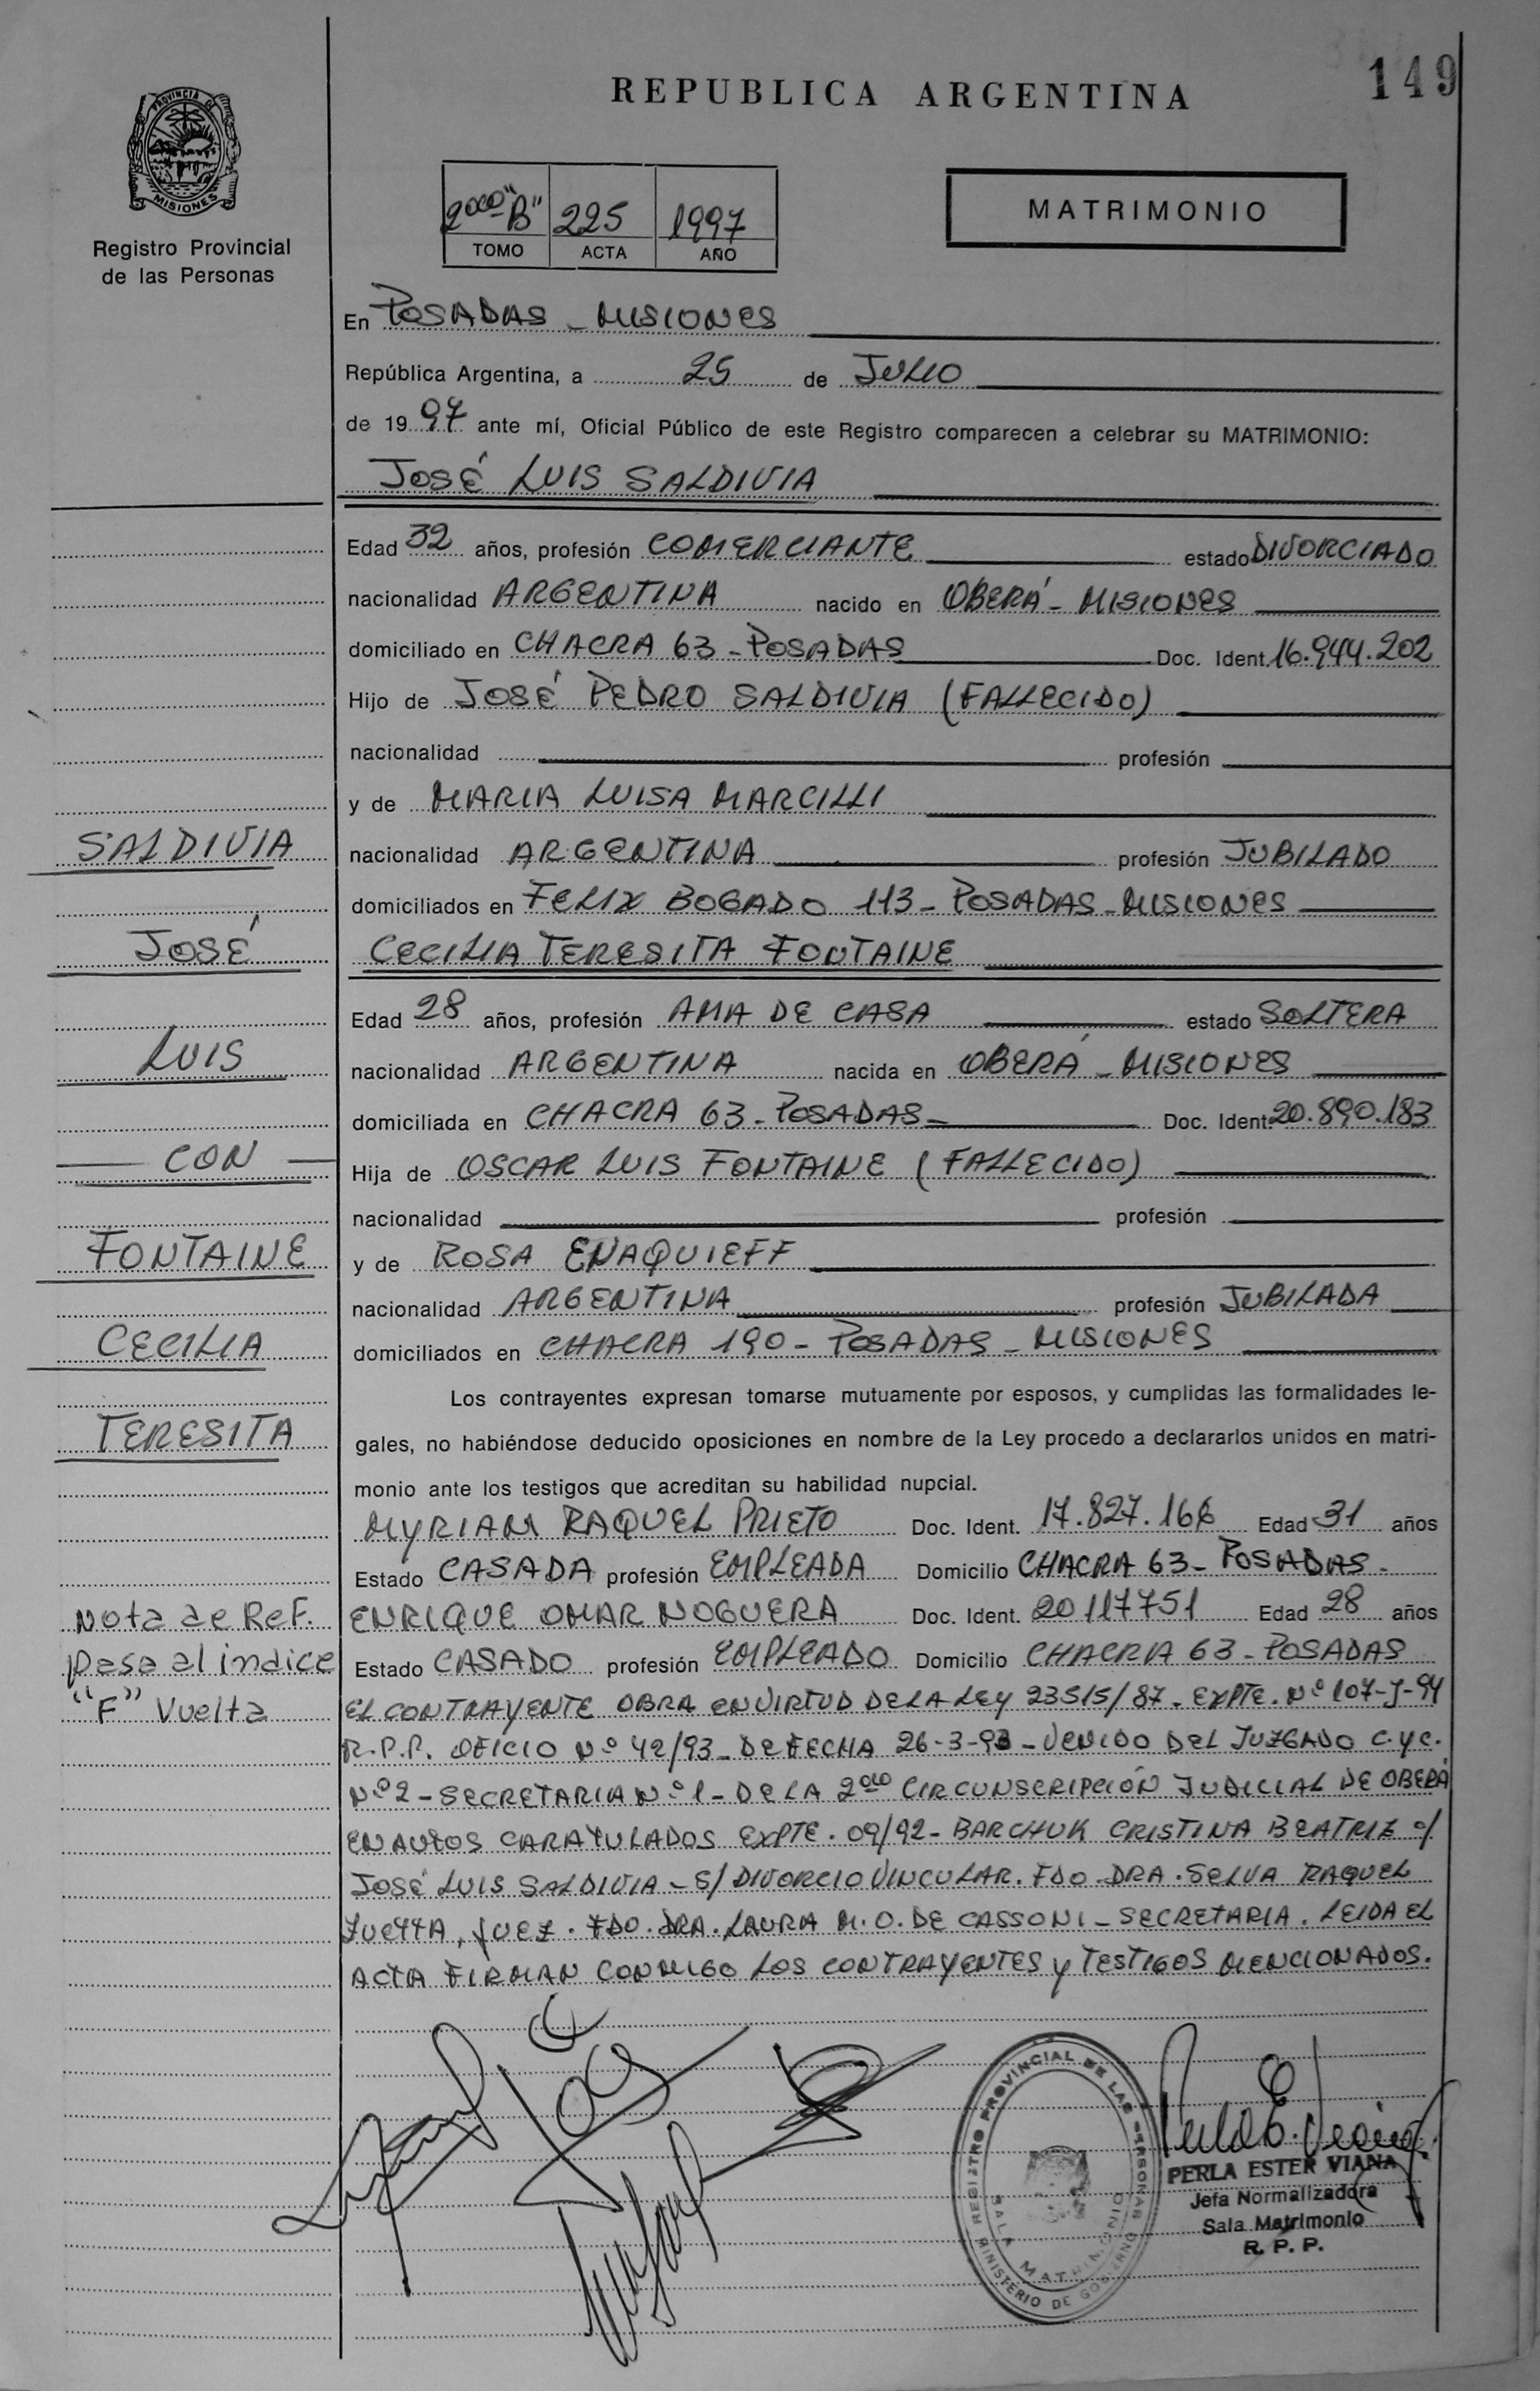 149
REPUBLICA ARGENTINA
PROVINCIA D
MISIONES
Registro Provincial
de las Personas
2000 "B" 225 1997
TOMO ACTA AÑO
MATRIMONIO
En POSADAS - MISIONES
República Argentina, a 25 de JULIO
de 19 97 ante mí, Oficial Público de este Registro comparecen a celebrar su MATRIMONIO:
JOSÉ LUIS SALDIVIA
Edad 32 años, profesión COMERCIANTE estado DIVORCIADO
nacionalidad ARGENTINA nacido en OBERÁ - MISIONES
domiciliado en CHACRA 63 - POSADAS Doc. Ident. 16.944.202
Hijo de JOSÉ PEDRO SALDIVIA (FALLECIDO)
nacionalidad profesión
y de MARIA LUISA MARCILLI
SALDIVIA
nacionalidad ARGENTINA profesión JUBILADO
domiciliados en FELIX BOGADO 113 - POSADAS - MISIONES
JOSÉ
CECILIA TERESITA FONTAINE
Edad 28 años, profesión AMA DE CASA estado SOLTERA
LUIS
nacionalidad ARGENTINA nacida en OBERÁ - MISIONES
domiciliada en CHACRA 63 - POSADAS - Doc. Ident. 20.890.183
CON
Hija de OSCAR LUIS FONTAINE (FALLECIDO)
nacionalidad profesión
FONTAINE
y de ROSA ENAQUIEFF
nacionalidad ARGENTINA profesión JUBILADA
CECILIA
domiciliados en CHACRA 190 - POSADAS - MISIONES
Los contrayentes expresan tomarse mutuamente por esposos, y cumplidas las formalidades le-
TERESITA
gales, no habiéndose deducido oposiciones en nombre de la Ley procedo a declararlos unidos en matri-
monio ante los testigos que acreditan su habilidad nupcial.
MYRIAM RAQUEL PRIETO Doc. Ident. 17.827.166 Edad 31 años
Estado CASADA profesión EMPLEADA Domicilio CHACRA 63 - POSADAS -
Nota de Ref.
ENRIQUE OMAR NOGUERA Doc. Ident. 20117751 Edad 28 años
pasa al indice
Estado CASADO profesión EMPLEADO Domicilio CHACRA 63 - POSADAS
"F" Vuelta
EL CONTRAYENTE OBRA EN VIRTUD DE LA LEY 23515/87 - EXPTE. Nº 107-J-94
R.P.P. OFICIO Nº 42/93 - DE FECHA 26-3-93 - VENIDO DEL JUZGADO C.yC.
Nº 2 - SECRETARIA Nº 1 - DE LA 2 CIRCUNSCRIPCIÓN JUDICIAL DE OBERÁ
EN AUTOS CARATULADOS EXPTE. 09/92 - BARCHUK CRISTINA BEATRIZ c/
JOSÉ LUIS SALDIVIA - S/ DIVORCIO VINCULAR. FDO. DRA. SELVA RAQUEL
ZUETTA, JUEZ. FDO. DRA. LAURA M. O. DE CASSONI - SECRETARIA. LEIDA EL
ACTA FIRMAN CONMIGO LOS CONTRAYENTES Y TESTIGOS MENCIONADOS.
REGISTRO PROVINCIAL DE LAS PERSONAS
SALA MATRIMONIO
MINISTERIO DE GOBIERNO
PERLA ESTER VIANA
Jefa Normalizadora
Sala Matrimonio
R. P. P.